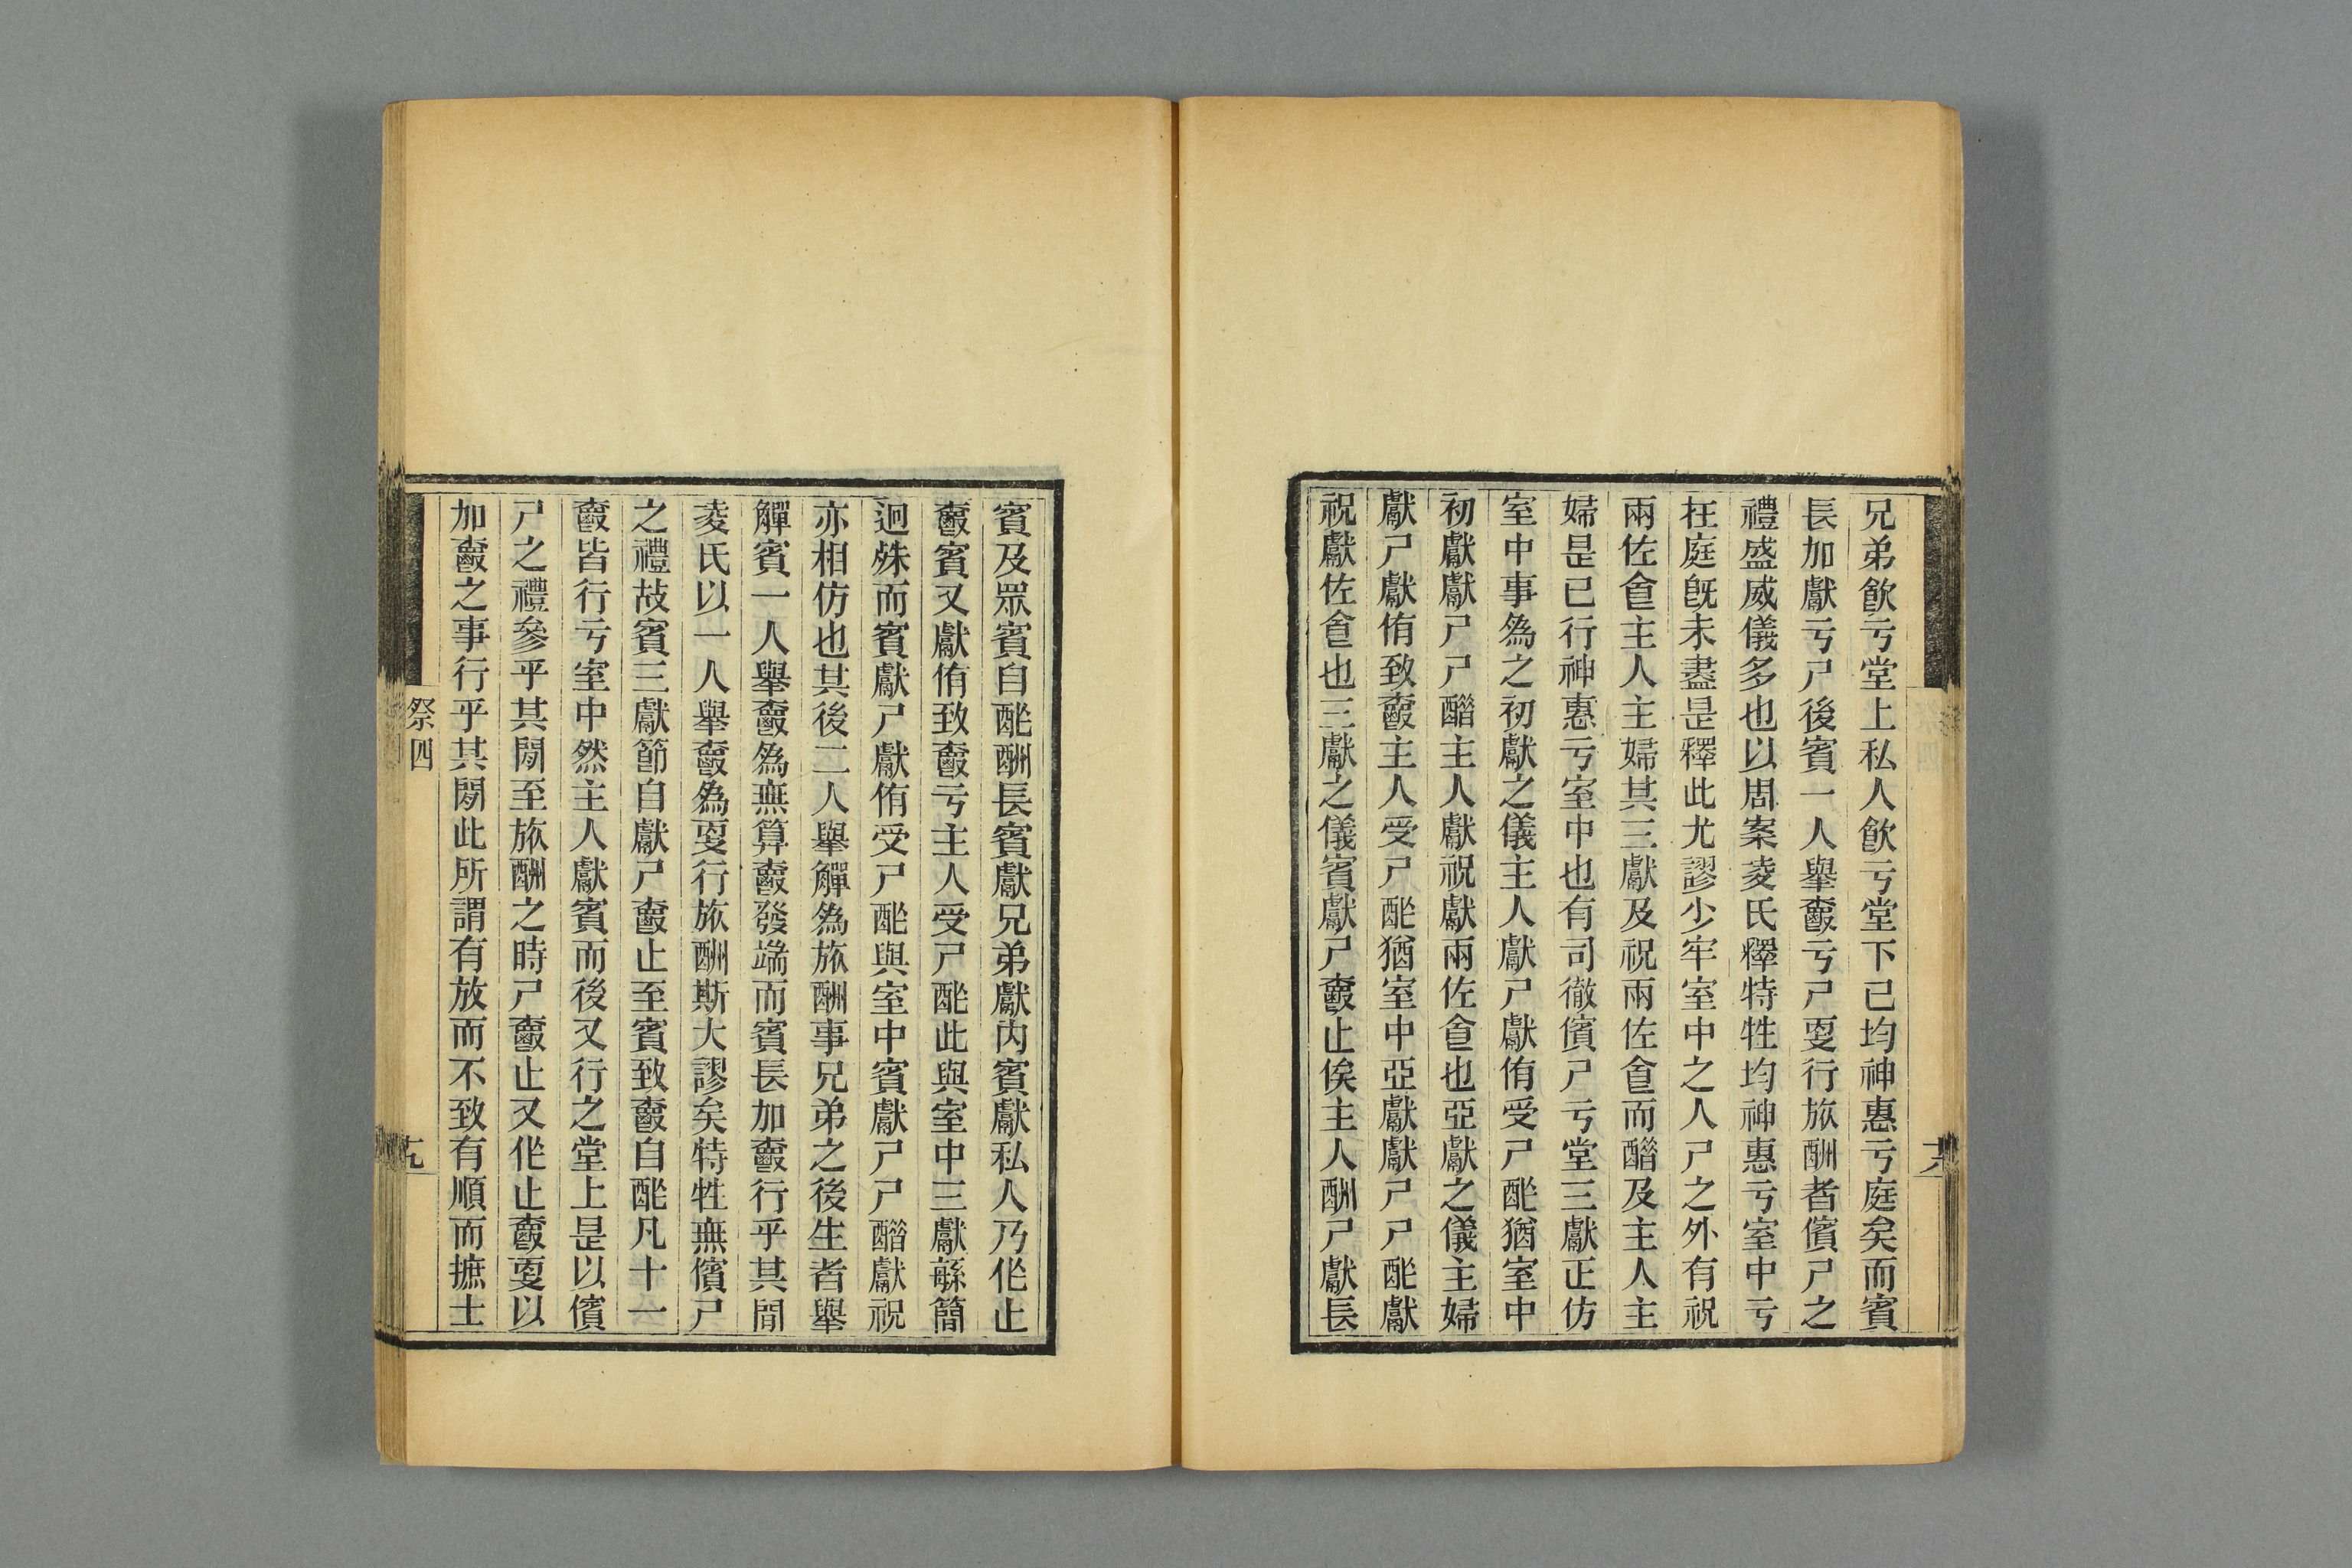 兄弟飮亏堂上私人飮亏堂下己均神惠亏庭矣而賓
長加獻亏尸後賓一人舉爵亏尸更行旅酬者儐尸之
禮盛威儀多也以周案凌氏釋特牲均神惠亏室中亏
在庭旣未盡是釋此尤謬少牢室中之人尸之外有祝
兩佐食主人主婦其三獻及祝兩佐食而醋及主人主
婦是已行神惠亏室中也有司徹儐尸亏堂三獻正仿
室中事爲之初獻之儀主人獻尸獻侑受尸酢猶室中
初獻獻尸尸醋主人獻祝獻兩佐食也亞獻之儀主婦
獻尸獻侑致爵主人受尸酢猶室中亞獻獻尸尸酢獻
祝獻佐食也三獻之儀賓獻尸爵止俟主人酬尸獻長
賓及眾賓自酢酬長賓獻兄弟獻內賓獻私人乃作止
爵賓又獻侑致爵亏主人受尸酢此與室中三獻緐簡
迥殊而賓獻尸獻侑受尸酢與室中賓獻尸尸醋獻祝
亦相仿也其後二人舉觶爲旅酬事兄弟之後生者舉
觶賓一人舉爵爲無算爵發端而賓長加爵行乎其間
凌氏以一人舉爵爲更行旅酬斯大謬矣特牲無儐尸
之禮故賓三獻節自獻尸爵止至賓致爵自酢凡十一
爵皆行亏室中然主人獻賓而後又行之堂上是以儐
尸之禮參乎其閒至旅酬之時尸爵止又作止爵更以
加爵之事行乎其閒此所謂有放而不致有順而摭士
祭四
十九
十八